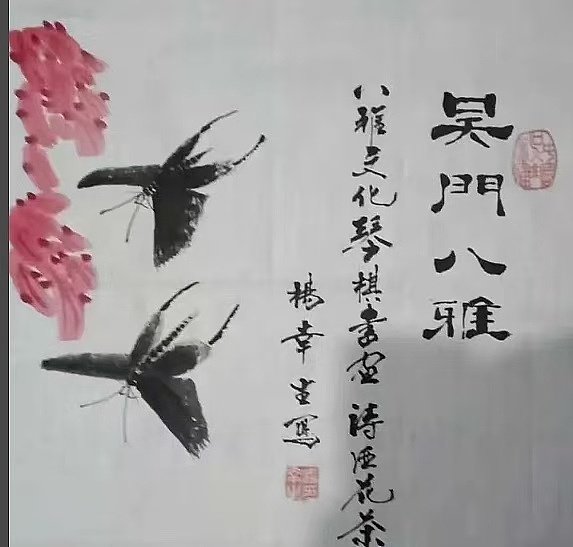 吴門八雅
八雅文化琴棋書画詩酒花茶
楊幸生寫